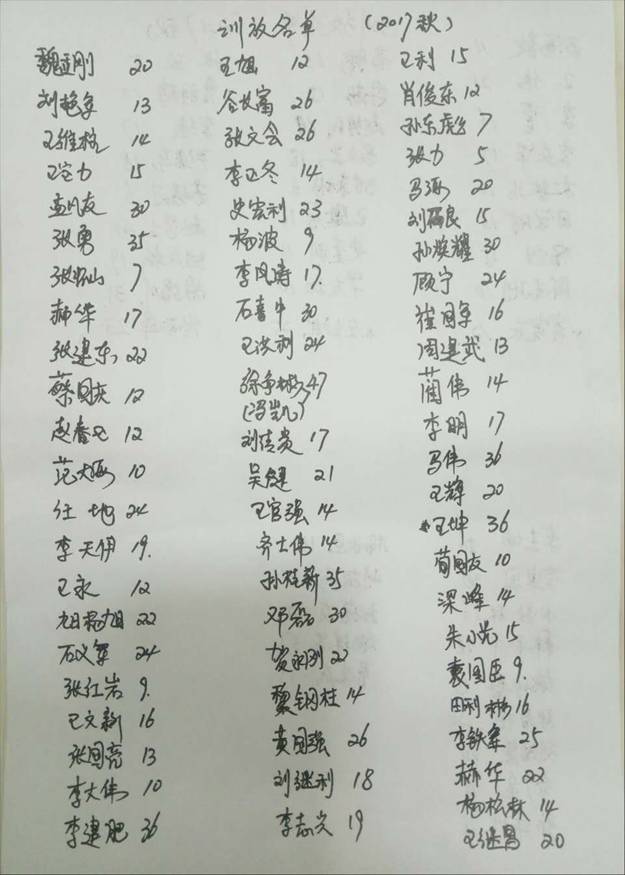 训放名单 (2017秋)
魏孟刚 20
刘艳军 13
王维权 14
王宝力 15
孟凡友 30
张勇 35
张怀山 7
郝华 17
张建东 22
蔡国庆 12
赵春七 12
范大海 10
任地 24
李天伊 19.
王永 12
22
石义军 24
张红岩 9.
王文新 16
张国亮 13
李大伟 10
李建肥 36
王旭 12
谷长富 26
张文会 26
李卫冬 14
史宏利 23
杨波 9
李凤涛 17
石喜牛 30
王洪利 24
徐争彬 47
(冯凯)
刘清贵 17
吴健 21
王官强 14
齐士伟 14
孙桂新 35
邓磊 30
贺永刚 22
黎钢柱 14
黄国强 26
刘继利 18
李志兴 19
王利 15
肖俊东 12
孙东彪 7
张力 5
马海 20
刘福良 15
孙焕耀 30
顾宁 24
崔国军 16
周建武 13
蔺伟 14
李明 17
马伟 36
王辉 20
*王坤 36
苟国友 10
梁峰 14
朱小光 15
袁国臣 9.
田利彬 16
李铁军 25
赫华 22
杨松林 14
王继昌 20